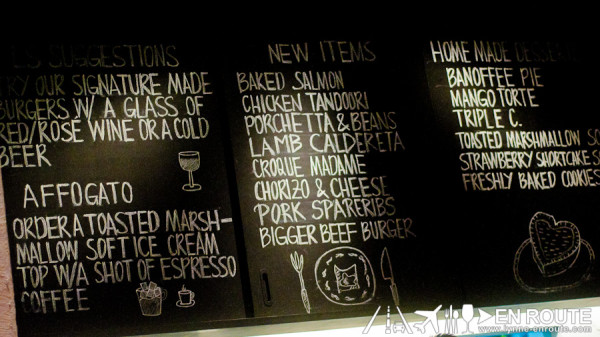 SUGGESTIONS
TRY OUR SIGNATURE MADE
BURGERS W/ A GLASS OF
RED/ROSE WINE OR A COLD
BEER
AFFOGATO
ORDER A TOASTED MARSH-
MALLOW SOFT ICE CREAM
TOP W/A SHOT OF ESPRESSO
COFFEE
NEW ITEMS
BAKED SALMON
CHICKEN TANDOORI
PORCHETTA & BEANS
LAMB CALDERETA
CROQUE MADAME
CHORIZO & CHEESE
PORK SPARERIBS
BIGGER BEEF BURGER
HOME MADE DESSERTS
BANOFFEE PIE
MANGO TORTE
TRIPLE C.
TOASTED MARSHMALLOW
STRAWBERRY SHORTCAKE
FRESHLY BAKED COOKIES
EN ROUTE
www.lynne-enroute.com